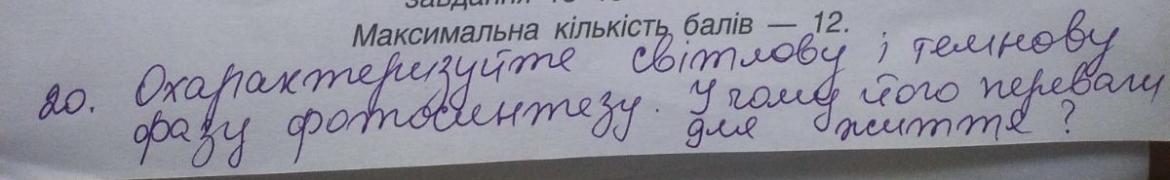 Максимальна кількість балів — 12.
20. Охарактеризуйте світлову і темнову
фазу фотосинтезу. У чому його переваги
для життя?